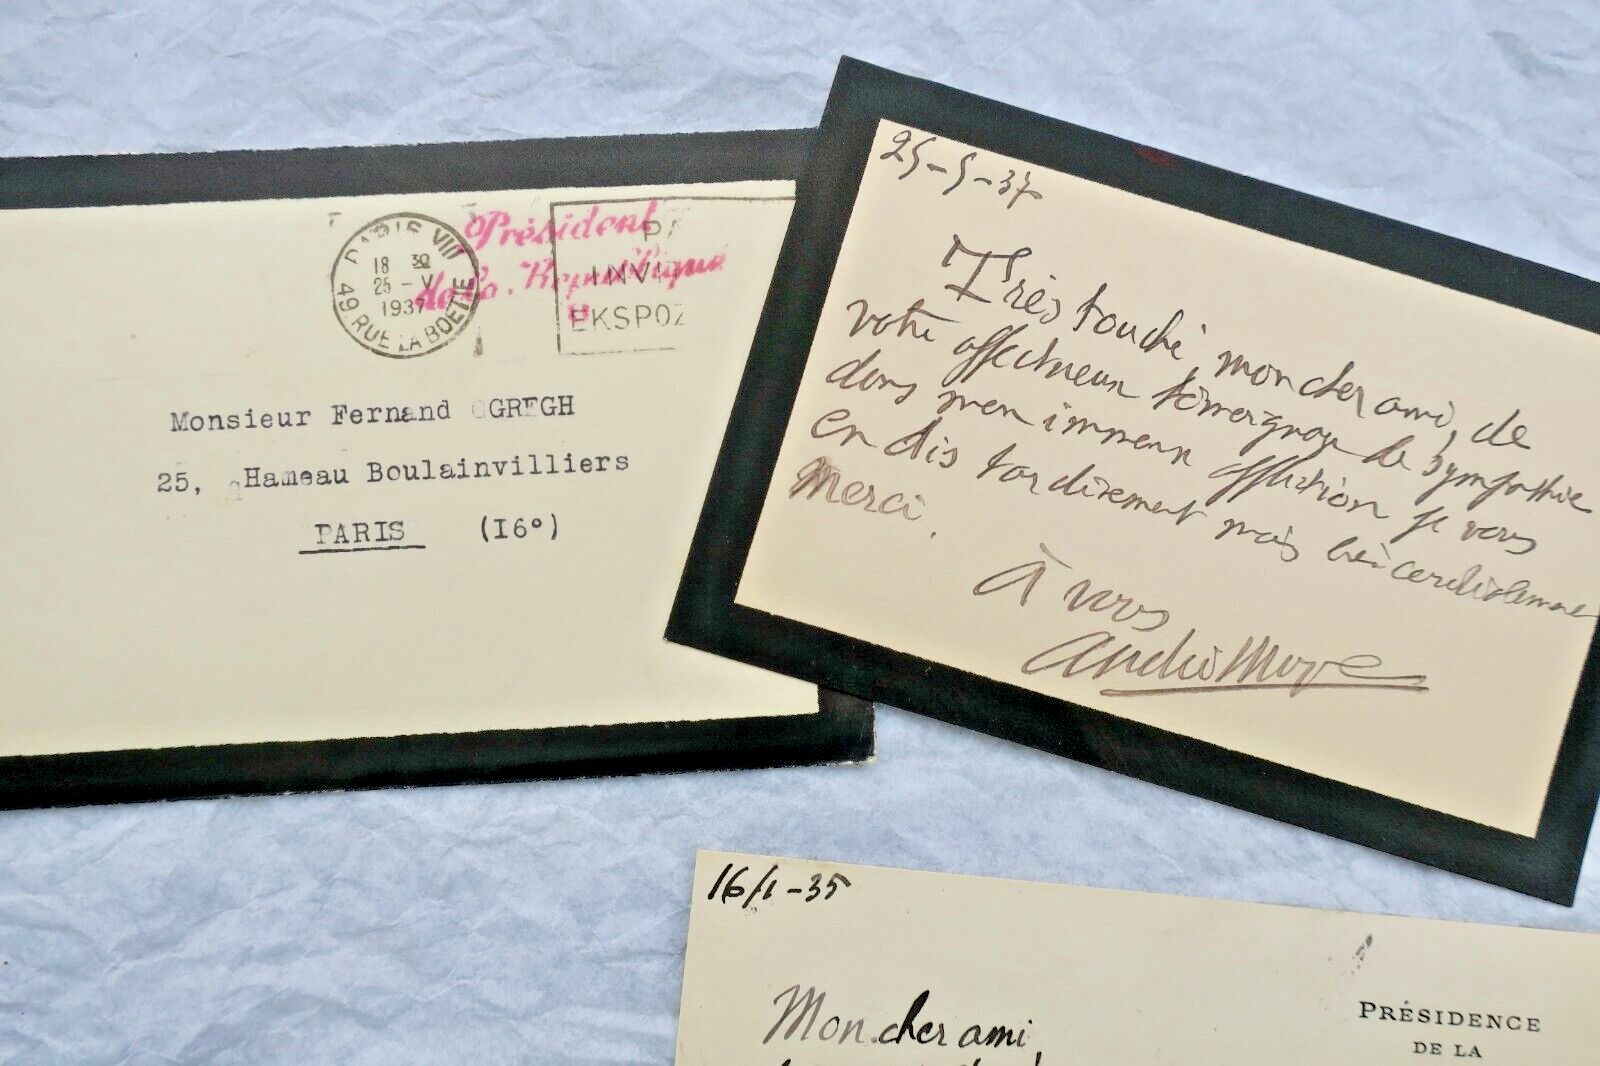 PARIS VIII
18 30
25 - V
1937
49 RUE LA BOETIE
Président
de la République
PA
INVIT
EKSPOZ
Monsieur Fernand GREGH
25, Hameau Boulainvilliers
PARIS (I6°)
25-5-37
Très touché, mon cher ami, de
votre affectueux témoignage de sympathie
dans mon immense affliction je vous
en dis tardivement mais très cordialement
Merci.
À vous
16/1-35
Mon cher ami
PRÉSIDENCE
DE LA